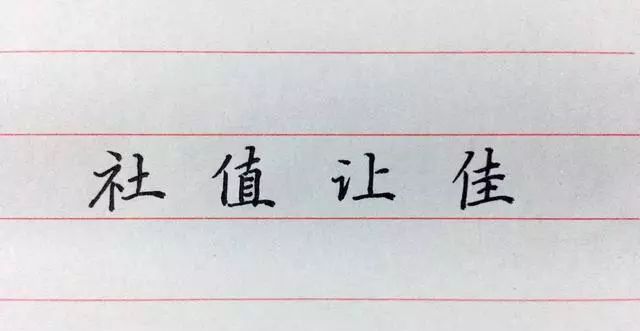 社值让佳